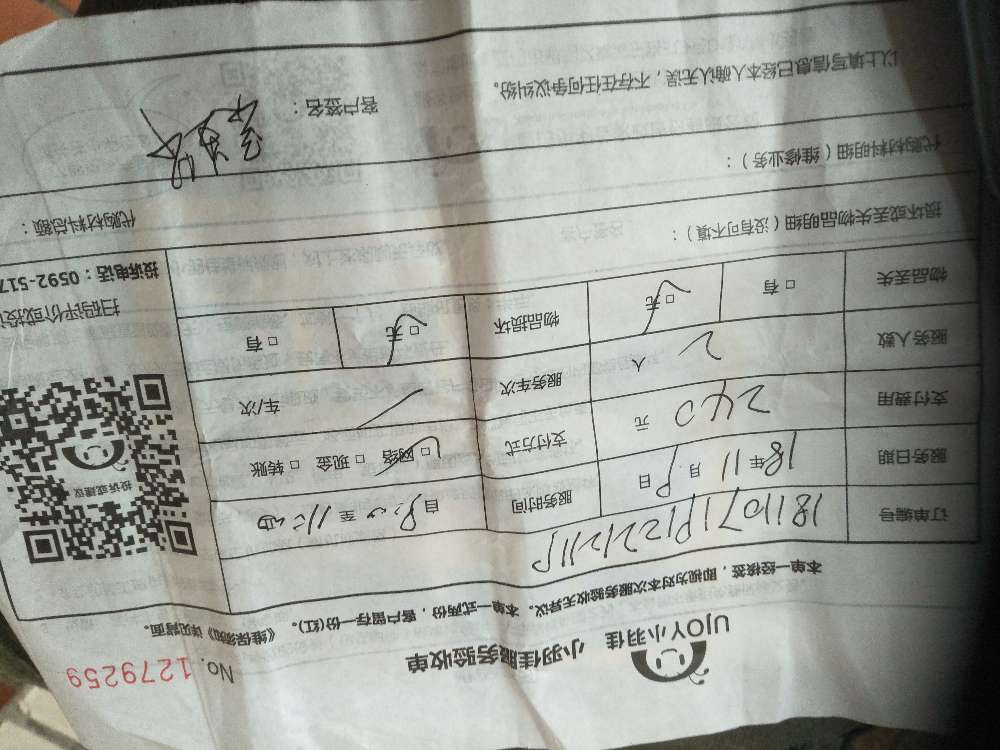 UJOY小羽佳 小羽佳服务验收单 No. 1279259
本单一经接签，即视为对本次服务验收无异议。本单一式两份，客户留存一份(红)。《维保须知》详见背面。
订单编号
服务日期 18年11月9日 服务时间 自 至
支付费用 240元 支付方式 □网络 □现金 □转账
服务人数 2人 服务车次 车/次
物品丢失 □有 □无 物品损坏 □无 □有
投诉或建议
扫码评价或投
投诉电话：0592-517
损坏或丢失物品明细（没有可不填）：
代购材料明细（维修业务）： 代购材料总额：
以上填写信息已经本人确认无误，不存在任何争议纠纷。 客户签名：